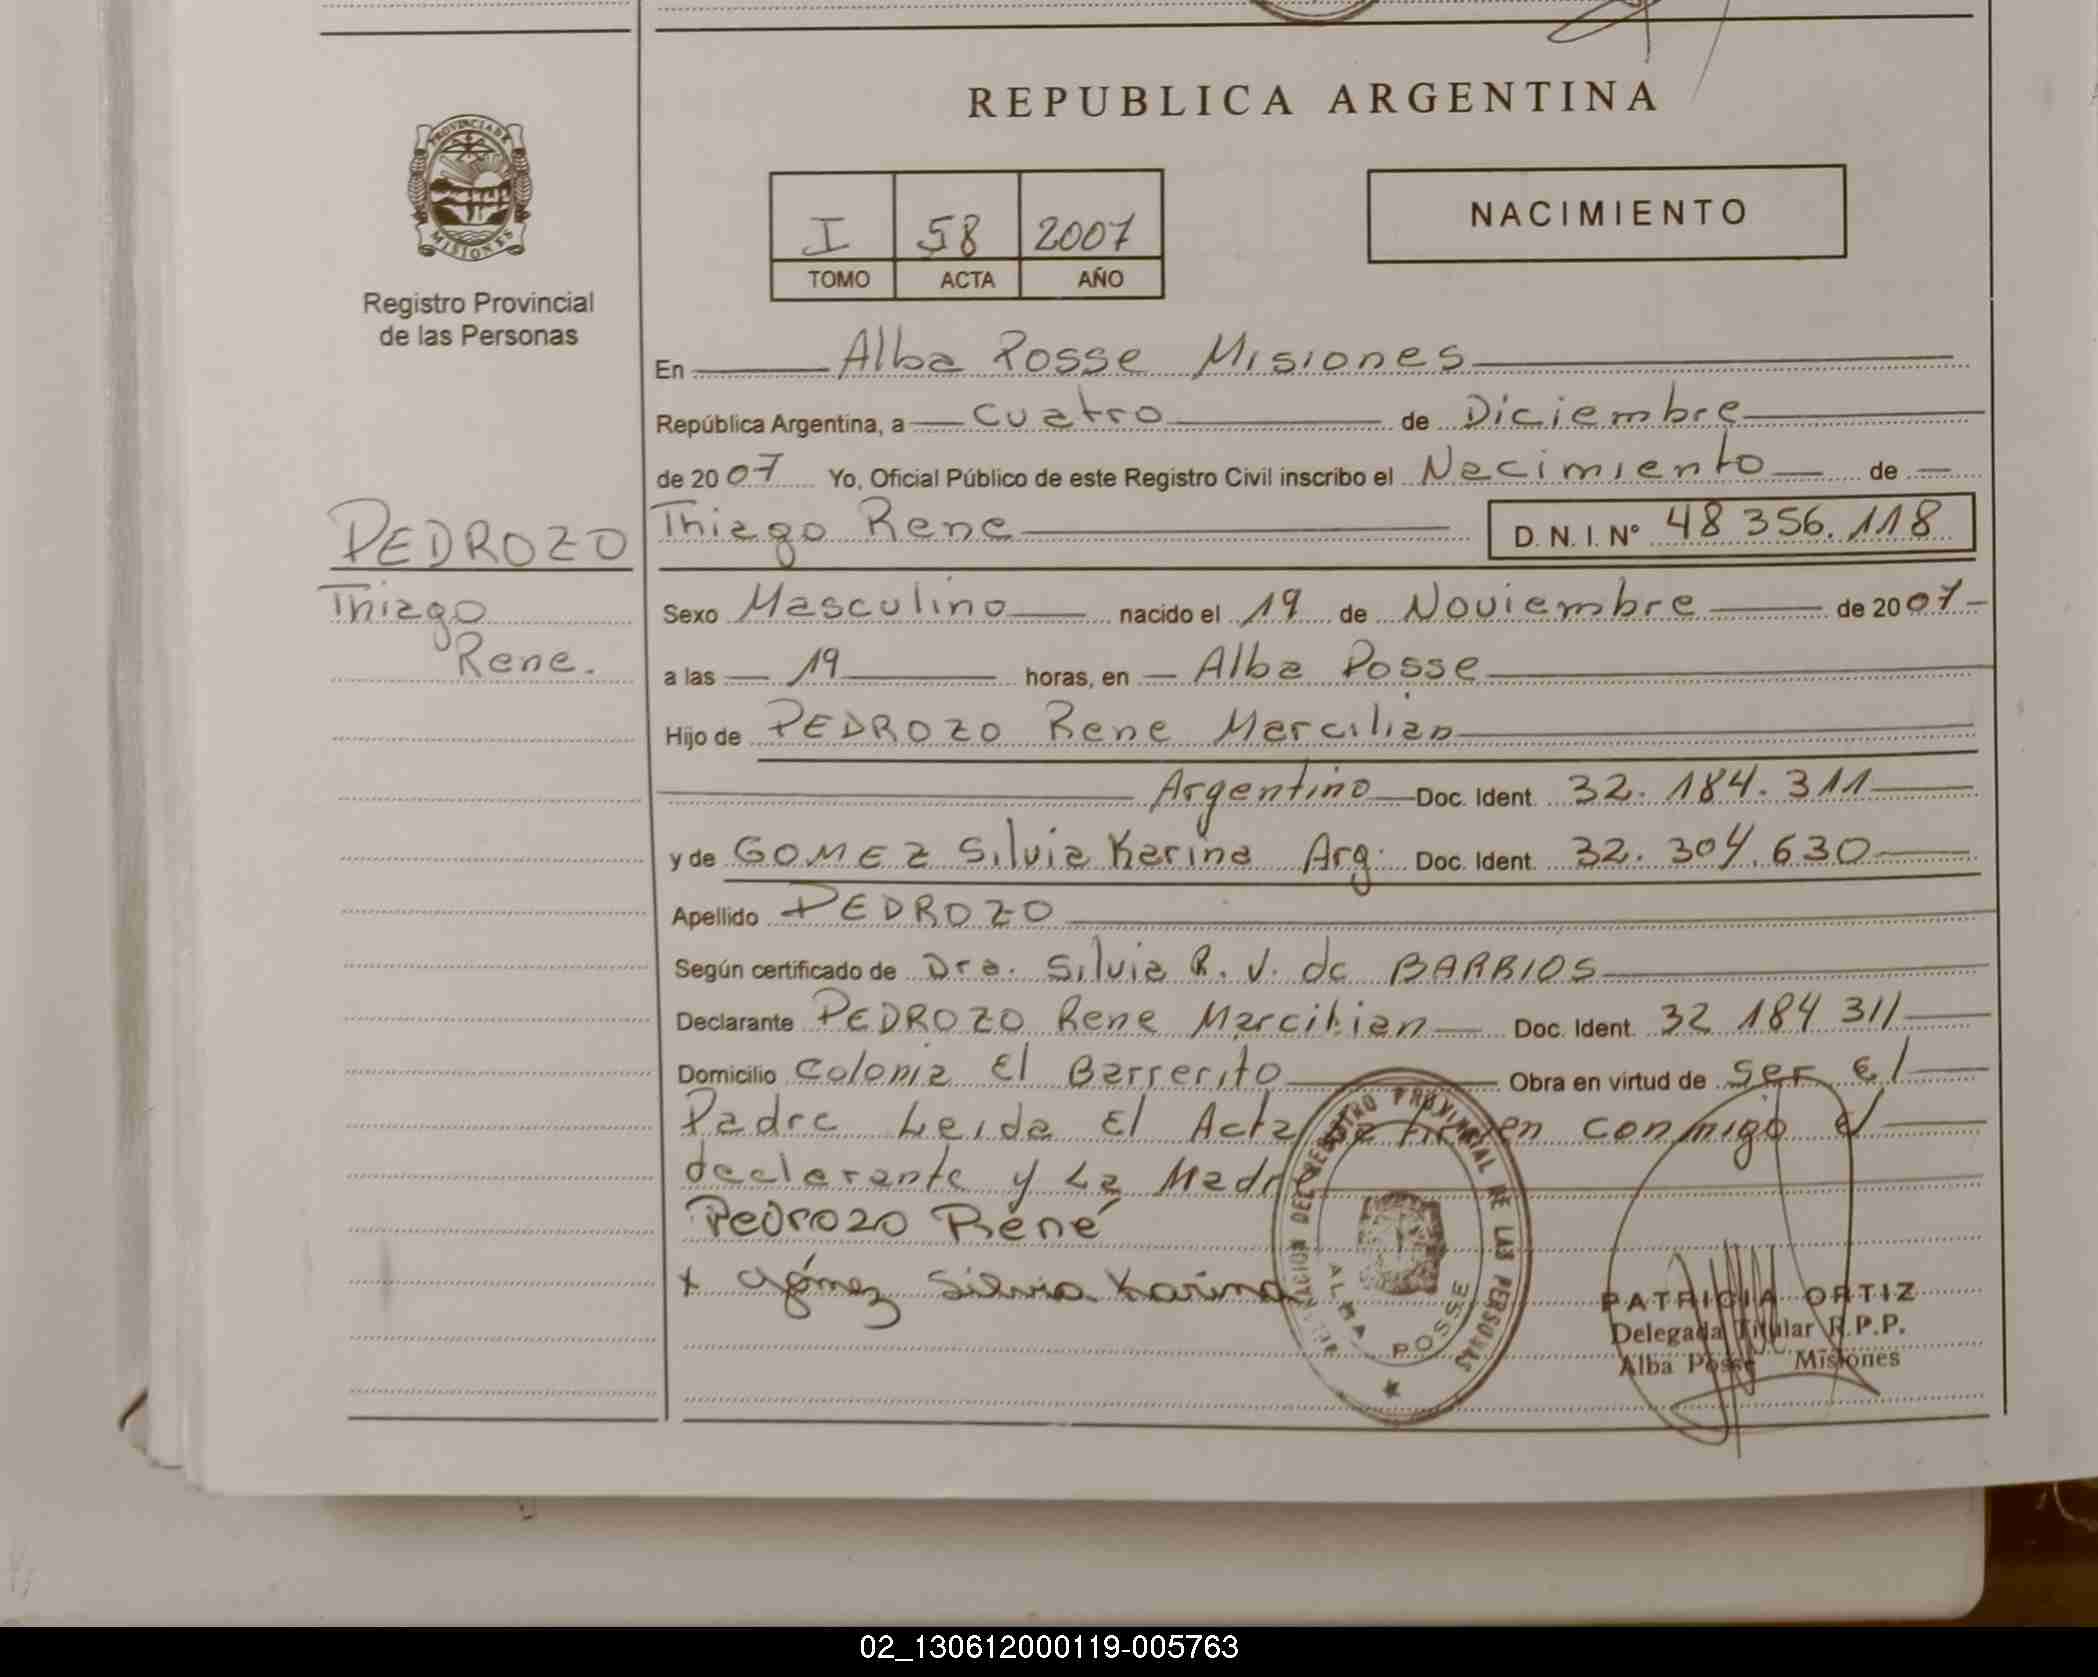 REPUBLICA ARGENTINA
PROVINCIA DE
MISIONES
Registro Provincial
de las Personas
I 58 2007
TOMO ACTA AÑO
NACIMIENTO
En Alba Posse Misiones
República Argentina, a cuatro de Diciembre
de 2007 Yo, Oficial Público de este Registro Civil inscribo el Nacimiento de
PEDROZO
Thiago
Rene.
Thiago Rene D. N. I. Nº 48 356.118
Sexo Masculino nacido el 19 de Noviembre de 2007
a las 19 horas, en Alba Posse
Hijo de PEDROZO Rene Marcilian
Argentino Doc. Ident. 32.184.311
y de GOMEZ Silvia Karina Arg. Doc. Ident. 32.304.630
Apellido PEDROZO
Según certificado de Dra. Silvia R. V. de BARRIOS
Declarante PEDROZO Rene Marcilian Doc. Ident. 32 184 311
Domicilio Colonia El Barrerito Obra en virtud de ser el
Padre Leida El Acta firman conmigo el
declarante y La Madre
Pedrozo René
+ Gómez Silvia Karina
DELEGACION DEL REGISTRO PROVINCIAL DE LAS PERSONAS
ALBA POSSE
PATRICIA ORTIZ
Delegada Titular R.P.P.
Alba Posse Misiones
02_130612000119-005763